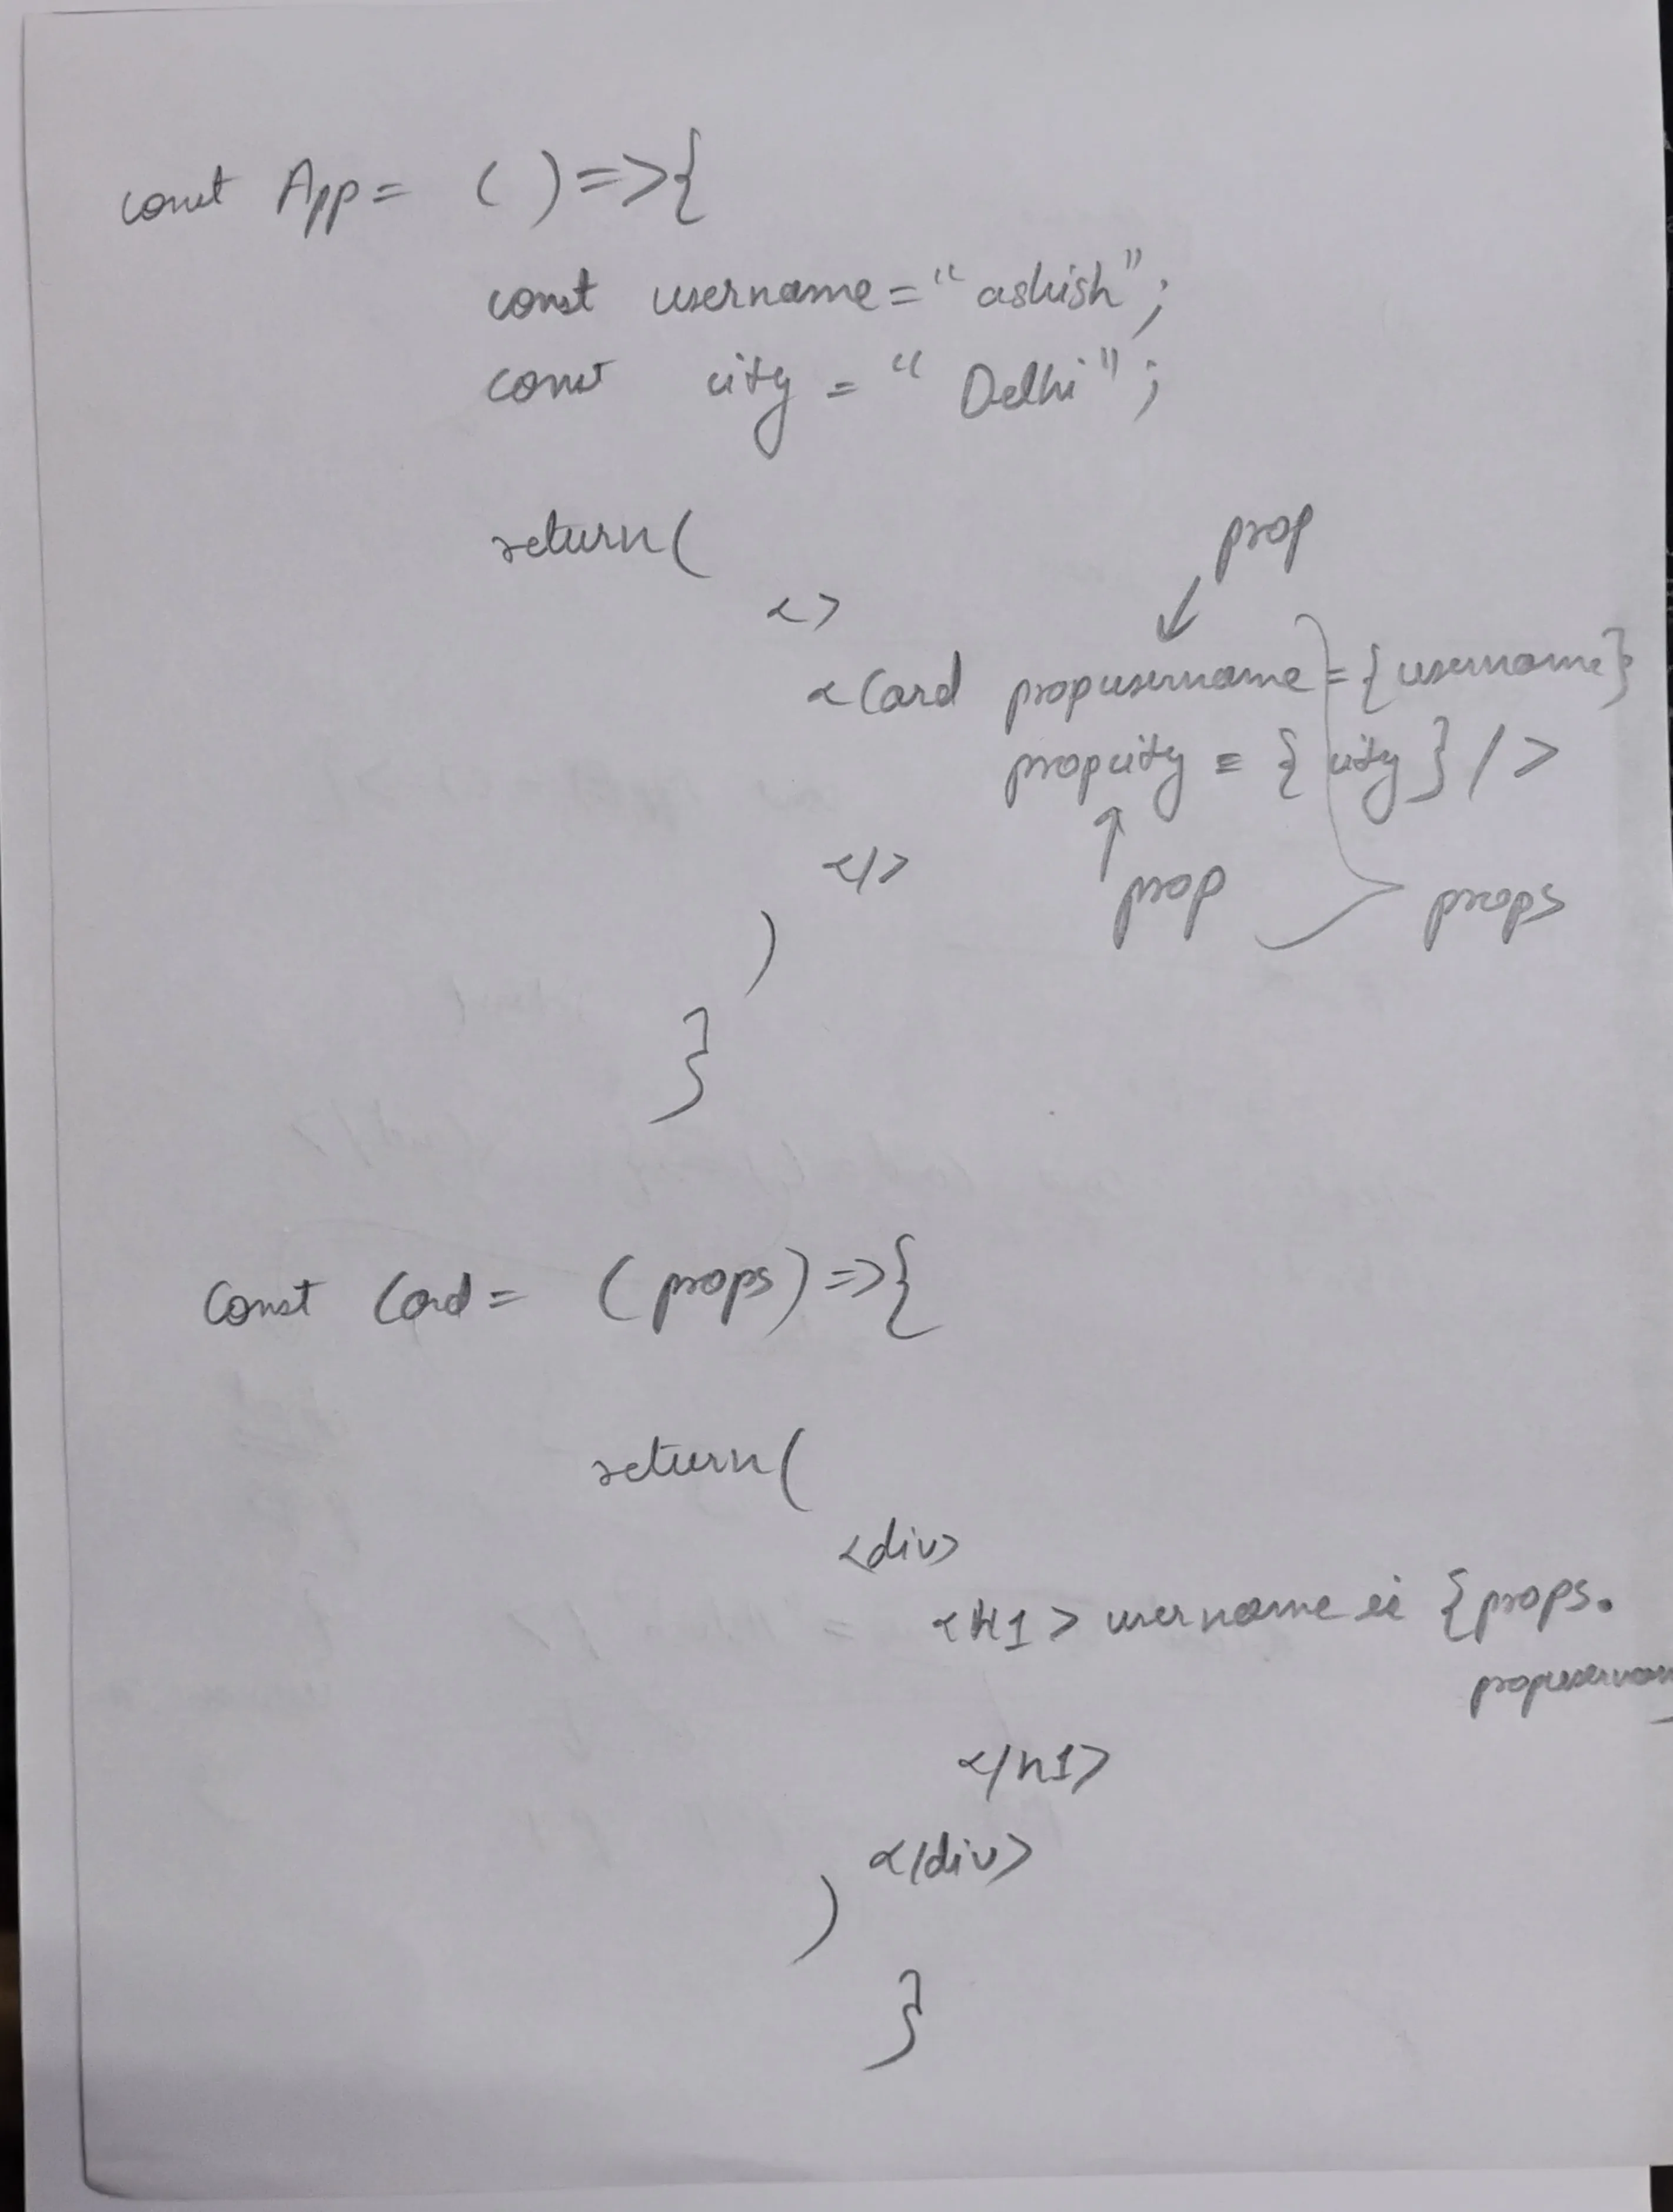 const App = ( ) => {
const username = "ashish";
const city = "Delhi";
return (
prop
<>
<Card propusername = {username}
propcity = {city} />
</>
prop
props
)
}
const Card = (props) => {
return (
<div>
<h1> username is {props.
</h1>
</div>
)
}